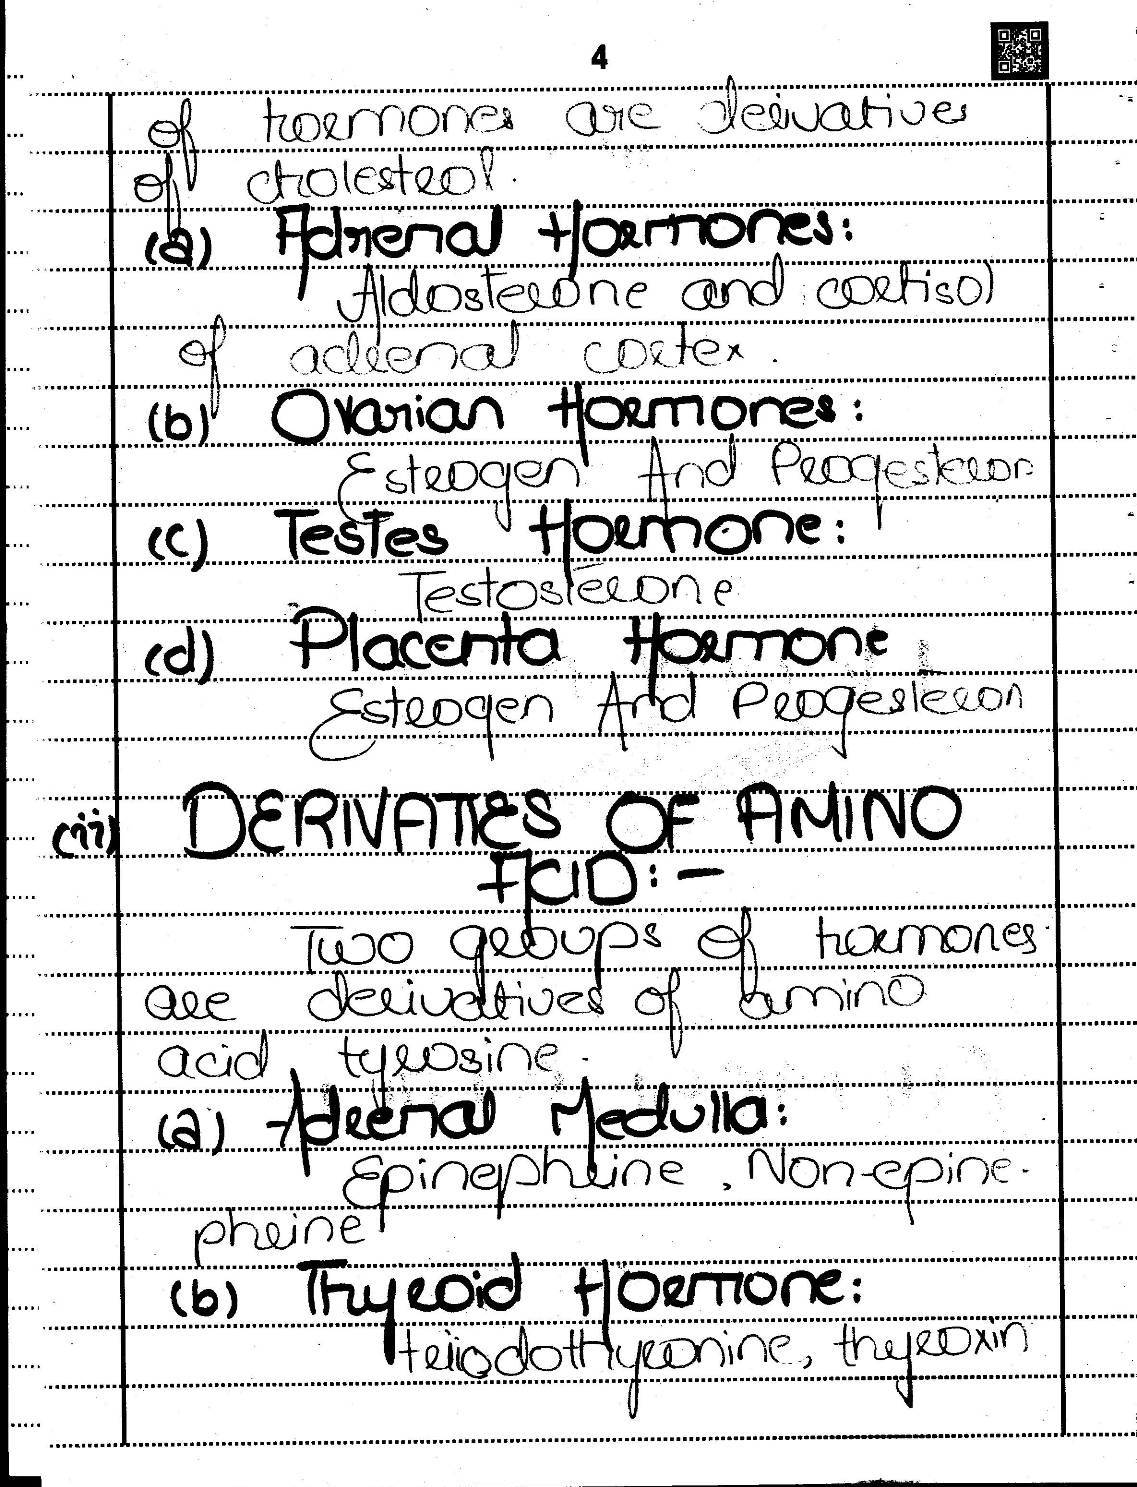 4
of hormones are derivatives
of cholesterol.
(a) Adrenal Hormones:
Aldosterone and cortisol
of adrenal cortex.
(b) Ovarian Hormones:
Estrogen And Progesteron
(c) Testes Hormone:
Testosterone
(d) Placenta Hormone
Estrogen And Progesteron
(ii) DERIVATIES OF AMINO
ACID:-
Two groups of hormones
are derivatives of amino
acid tyrosine.
(a) Adrenal Medulla:
Epinephrine, Non-epine-
phrine
(b) Thyroid Hormone:
triiodothyronine, thyroxin